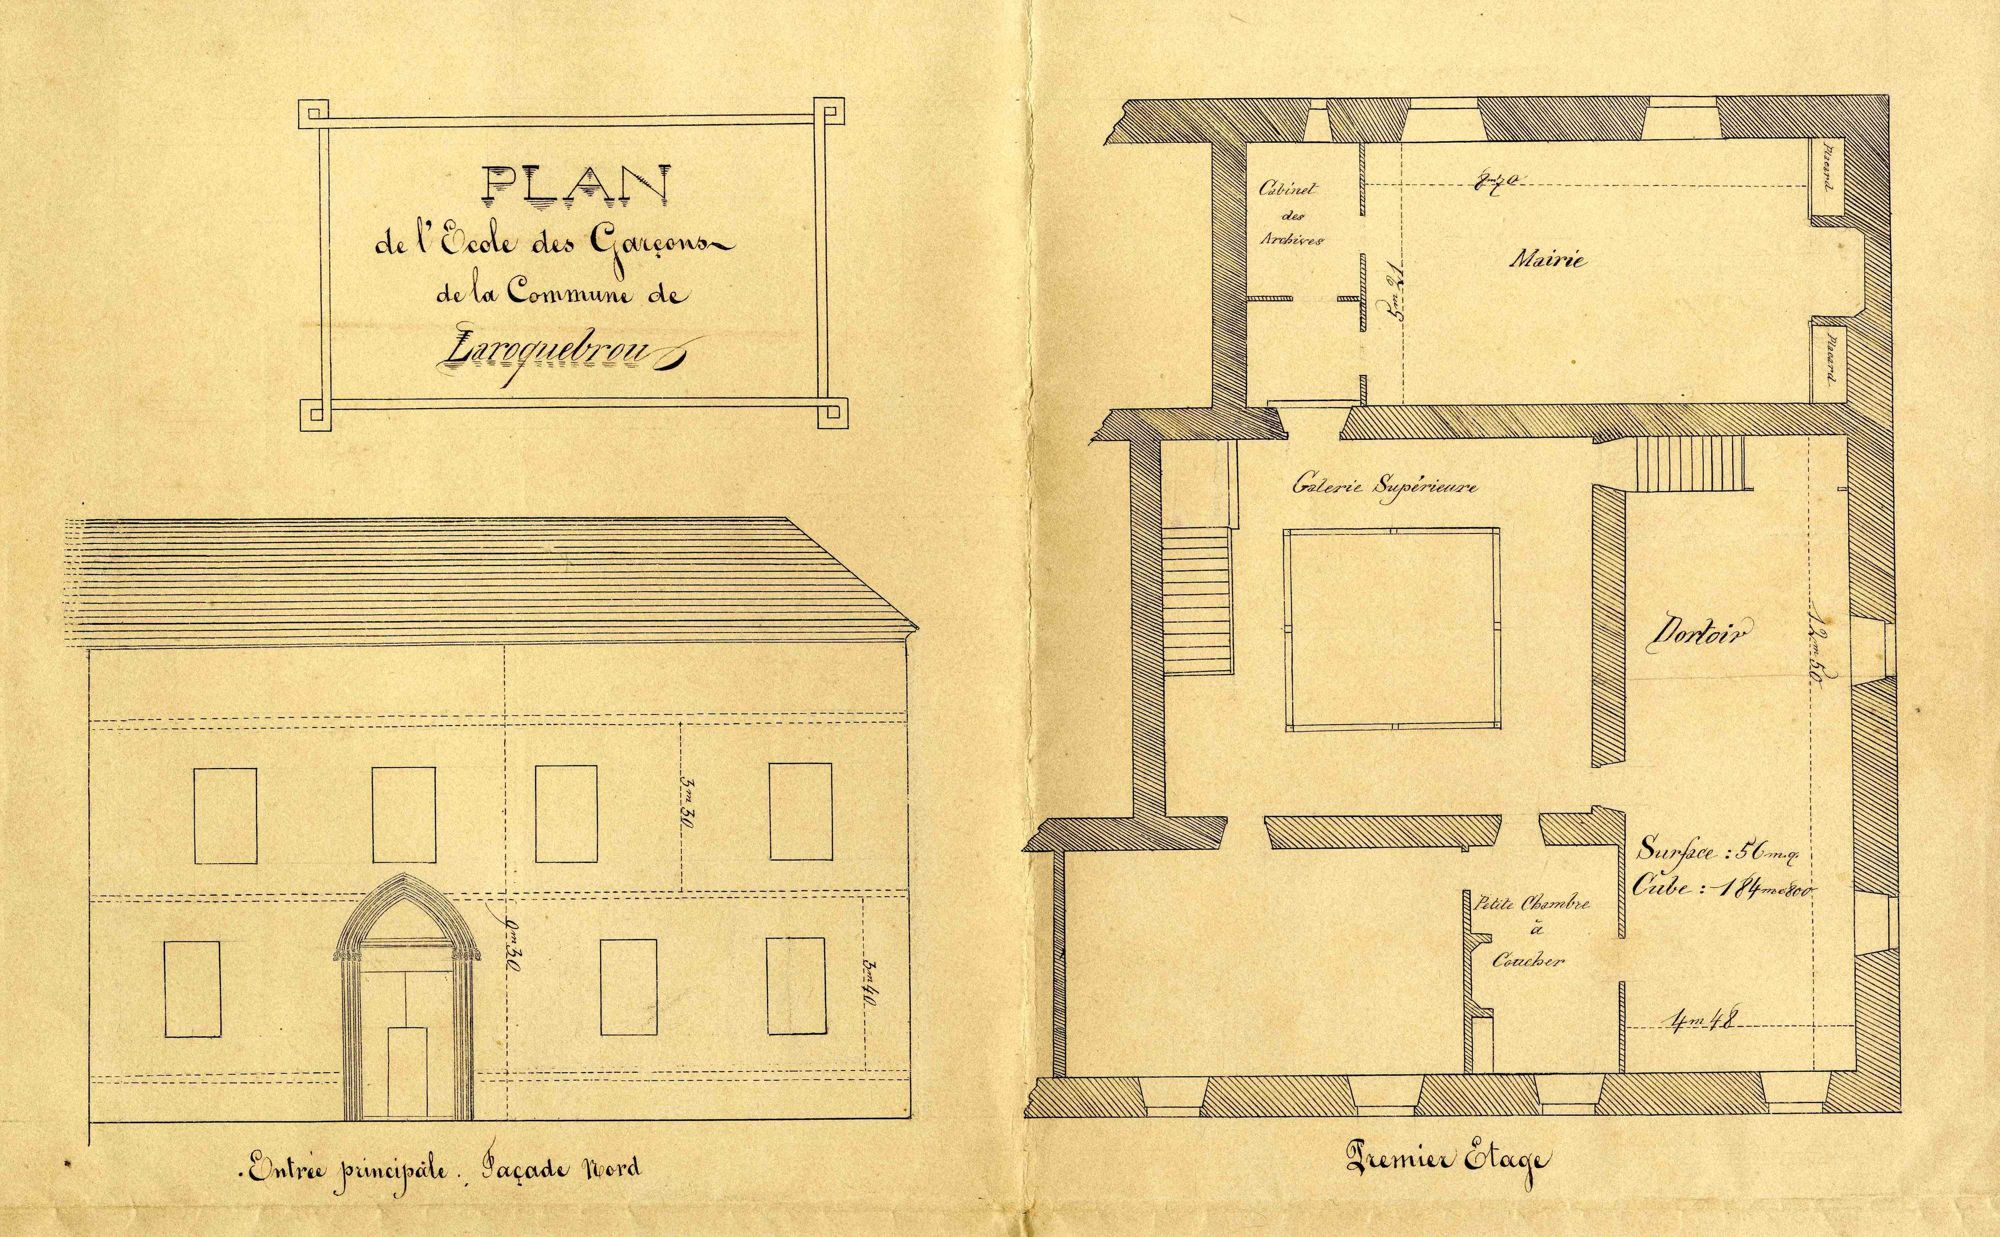 PLAN
de l'Ecole des Garçons
de la Commune de
Laroquebrou
3m30
9m30
3m40
Entrée principâle. Façade Nord
Cabinet
des
Archives
Mairie
Placard
Placard
Galerie Supérieure
Dortoir
12m50
Surface : 56 m.q.
Cube : 184mc800
Petite Chambre
à
Coucher
4m48
Premier Etage